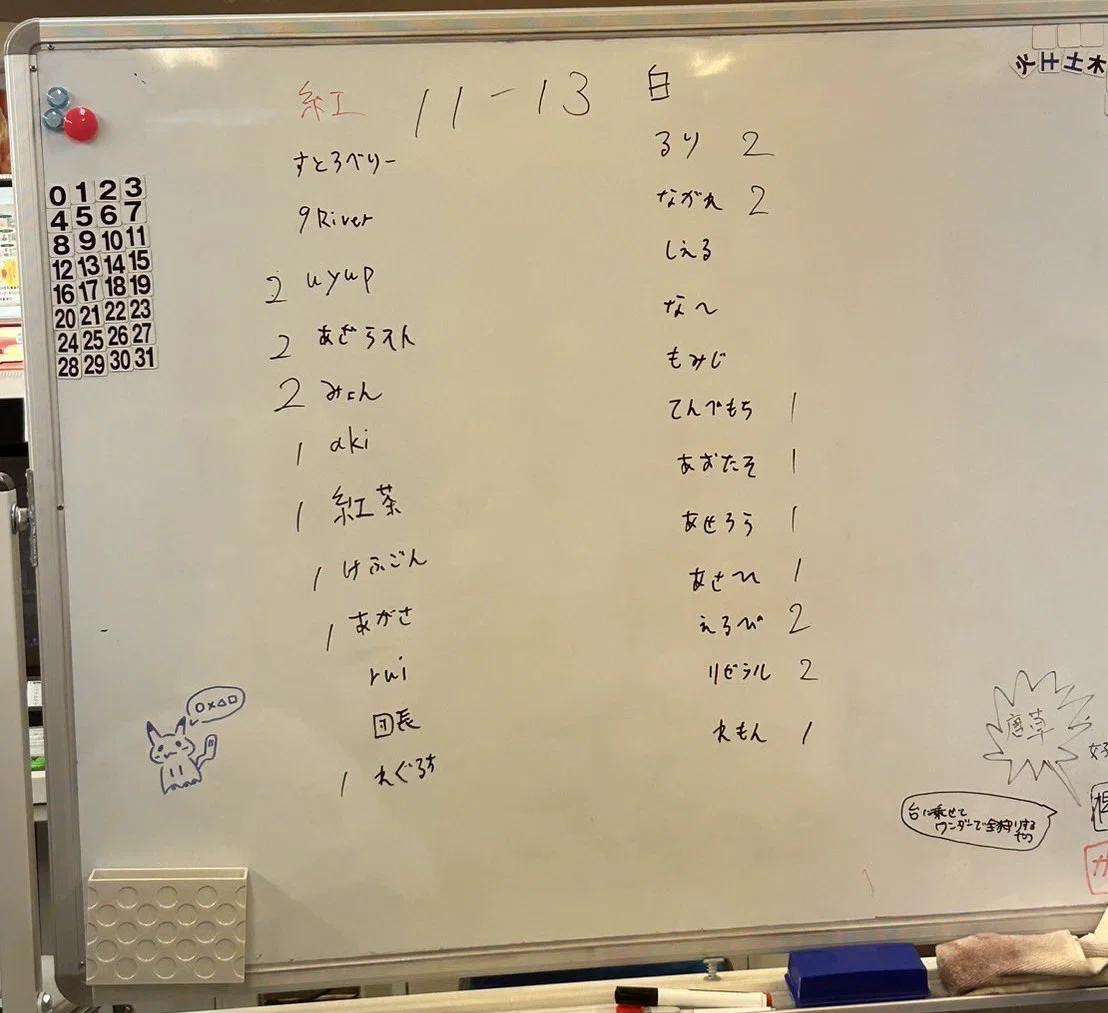 紅 11-13 白
すとろべりー
9River
2 uyup
2 あざらえん
2 みょん
1 aki
1 紅茶
1 けふごん
1 あがさ
rui
団長
1 れぐるす
るり 2
ながれ 2
しえる
な〜
もみじ
てんぷもち 1
あおたそ 1
あせろう 1
あさひ 1
えるぴ 2
リゼラル 2
れもん 1
0 1 2 3
4 5 6 7
8 9 10 11
12 13 14 15
16 17 18 19
20 21 22 23
24 25 26 27
28 29 30 31
火 土 土 木
○×△□
唐草
台に乗せて
ワンダーで全狩りする
やつ